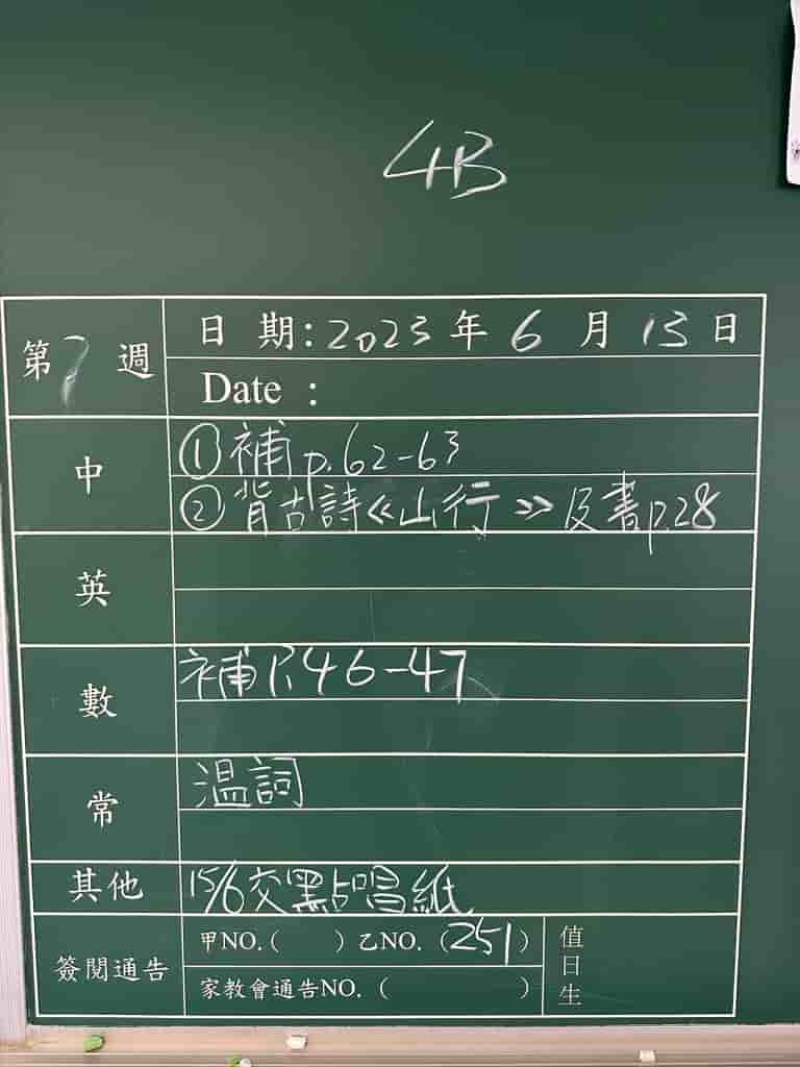 4B
第7週
日期:2023年6月13日
Date :
中
①補p.62-63
②背古詩《山行》反書p.28
英
數
補P.46-47
常
温詞
其他
15/6交點唱紙
簽閱通告
甲NO.( ) 乙NO.(251)
家教會通告NO.( )
值日生